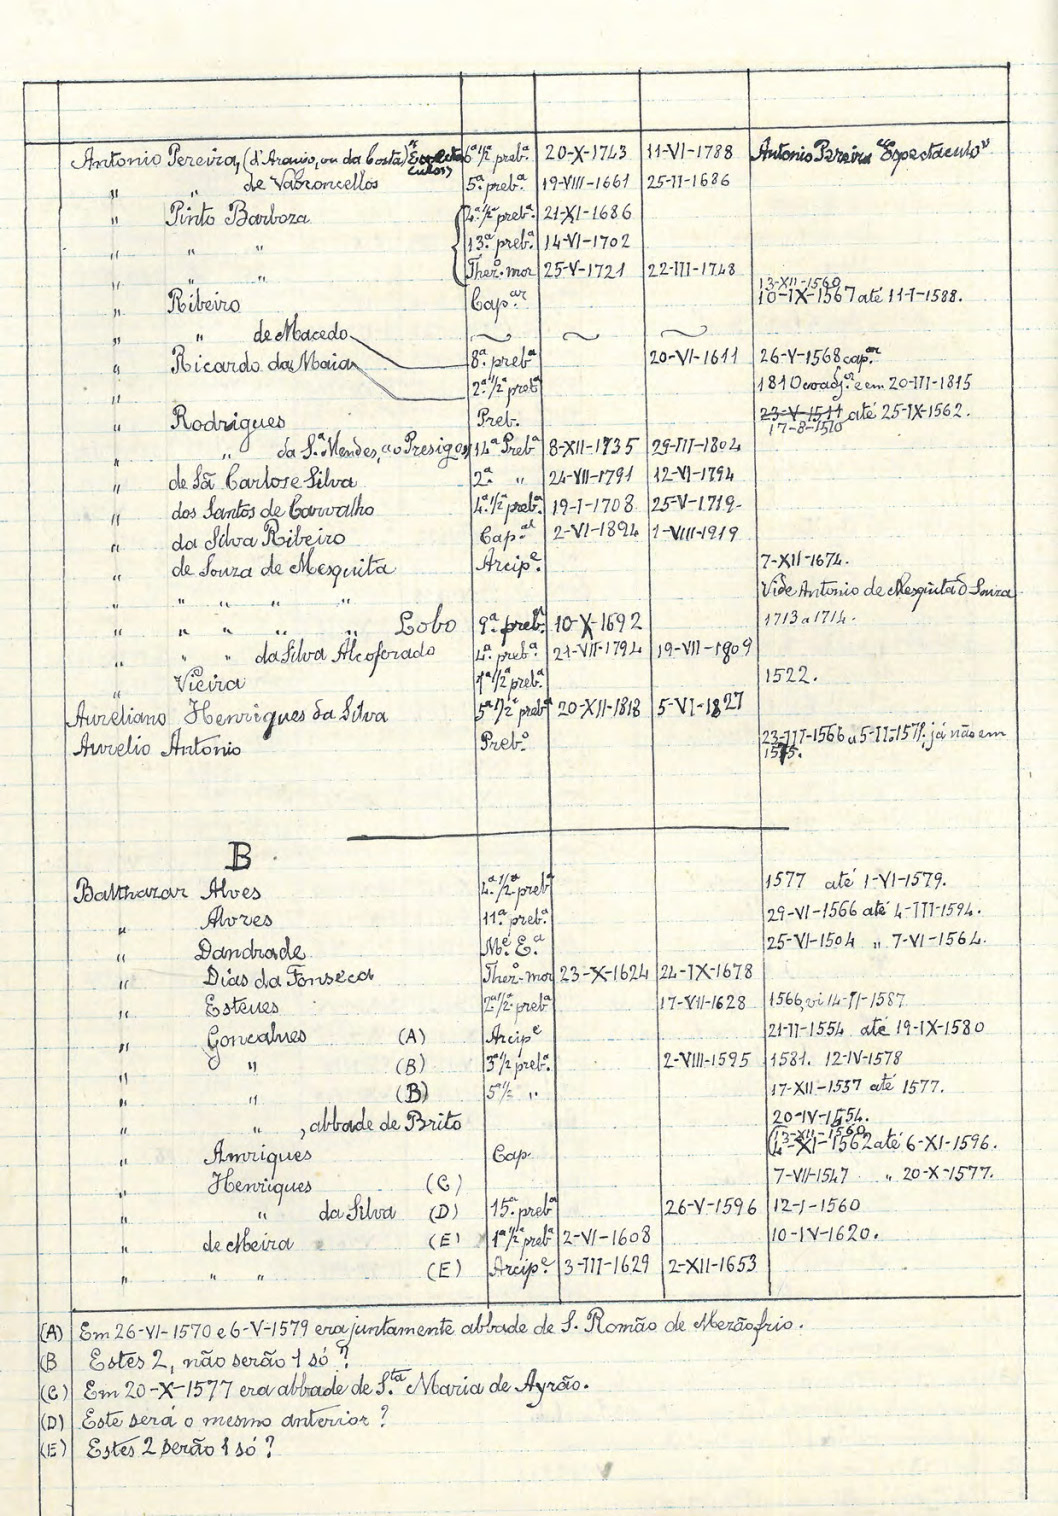 Antonio Pereira, (d'Araujo, ou da Costa) "Espectaculo") 6ª 1/2 prebª 20-X-1743 11-VI-1788 Antonio Pereira "Espectaculo"
" " de Vasconcellos 5ª prebª 19-VIII-1661 25-II-1686
" Pinto Barboza 4ª 1/2 prebª 21-XI-1686
" " " 13ª prebª 14-VI-1702
" " " Thezº-mor 25-V-1721 22-III-1748
13-XII-1560
" Ribeiro Cap.ar 10-IX-1567 até 11-I-1588.
" " de Macedo ~ ~ ~
" Ricardo da Maia 8ª prebª 20-VI-1611 26-V-1568 cap.ar
" 2ª 1/2 prebª 1810 coadj.or e em 20-III-1815
" Rodrigues Preb. 23-V-1511 até 25-IX-1562.
17-8-1510
" " da Sª Mendes, ao Presigo 14ª Prebª 8-XII-1735 29-III-1804
" de Sã Carlos e Silva 2ª " 24-VII-1791 12-VI-1794
" dos Santos de Carvalho 4ª 1/2 prebª 19-I-1708 25-V-1719-
" da Silva Ribeiro Cap.al 2-VI-1894 1-VIII-1919
" de Souza de Mesquita Arcip.e 7-XII-1674.
" " " " " Vide Antonio de Mesquita d Souza
" " " " " Lobo 9ª prebª 10-X-1692 1713 a 1714.
" " " da Silva Alcoforado 4ª prebª 21-VII-1794 19-VII-1809
" Vieira 1ª 1/2 prebª 1522.
Aureliano Henriques da Silva 5ª 1/2 prebª 20-XII-1818 5-VI-1827
Aurelio Antonio Preb.º 23-III-1566 a 5-II-1571; já não em
1575.
B
Balthazar Alves 4ª 1/2 prebª 1577 até 1-VI-1579.
" Alvres 11ª prebª 29-VI-1566 até 4-III-1594.
" Dandrade M.e E.a 25-VI-1504 " 7-VI-1564.
" Dias da Fonseca Thezº-mor 23-X-1624 24-IX-1678
" Esteues 2ª 1/2 prebª 17-VII-1628 1566, vi 14-II-1587
" Goncalues (A) Arcip.e 21-II-1554 até 19-IX-1580
" " (B) 3ª 1/2 prebª 2-VIII-1595 1581. 12-IV-1578
" " (B) 5ª 1/2 " 17-XII-1537 até 1577.
" " , abbade de Brito 20-IV-1554.
13-XII-1560
" Amriques Cap. (4-XI-1562 até 6-XI-1596.
" Henriques (C) 7-VII-1547 " 20-X-1577.
" " da Silva (D) 15ª prebª 26-V-1596 12-I-1560
" de Meira (E) 1ª 1/2 prebª 2-VI-1608 10-IV-1620.
" " " (E) Arcip.e 3-III-1629 2-XII-1653
(A) Em 26-VI-1570 e 6-V-1579 era juntamente abbade de S. Romão de Mezãofrio.
(B Estes 2, não serão 1 só ?
(C) Em 20-X-1577 era abbade de S.ta Maria de Ayrão.
(D) Este será o mesmo anterior ?
(E) Estes 2 serão 1 só ?